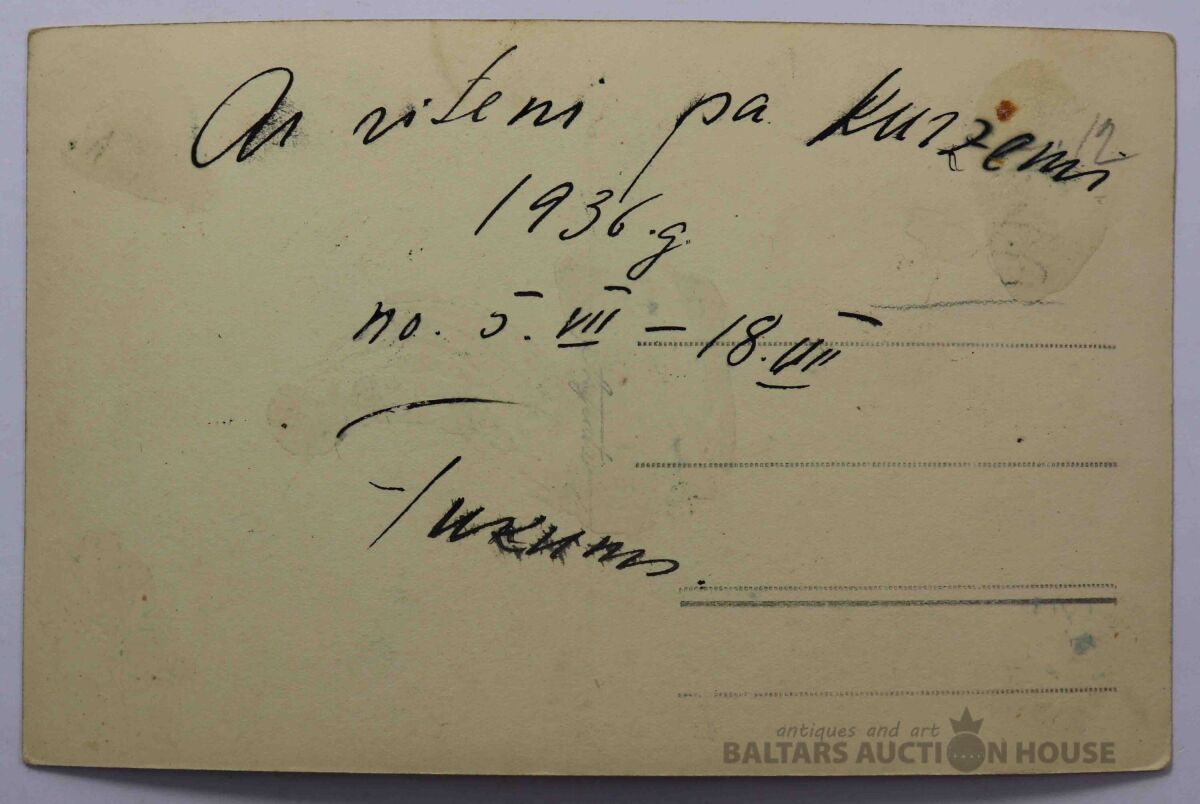 Ar riteni pa Kurzemi
12
1936.g.
no. 5. VII – 18. VII
Tukums.
antiques and art
BALTARS AUCTION HOUSE